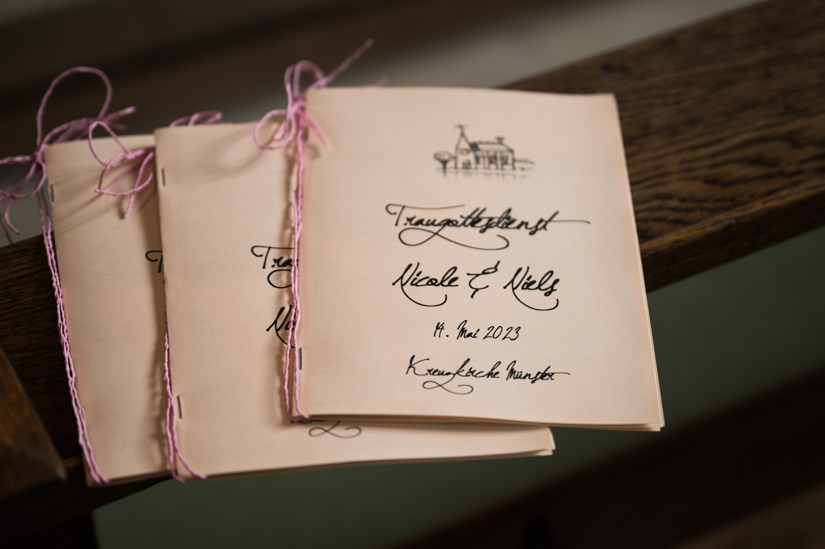 Traugottesdienst
Nicole & Niels
14. Mai 2023
Kreuzkirche Münster